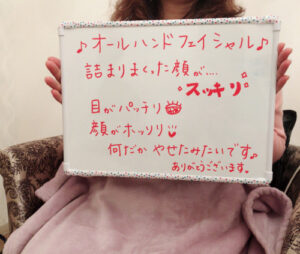 ♪オールハンドフェイシャル♪
詰まりまくった顔が....
スッキリ
目がパッチリ
顔がホッソリ
何だか やせたみたいです♪
ありがとうございます。